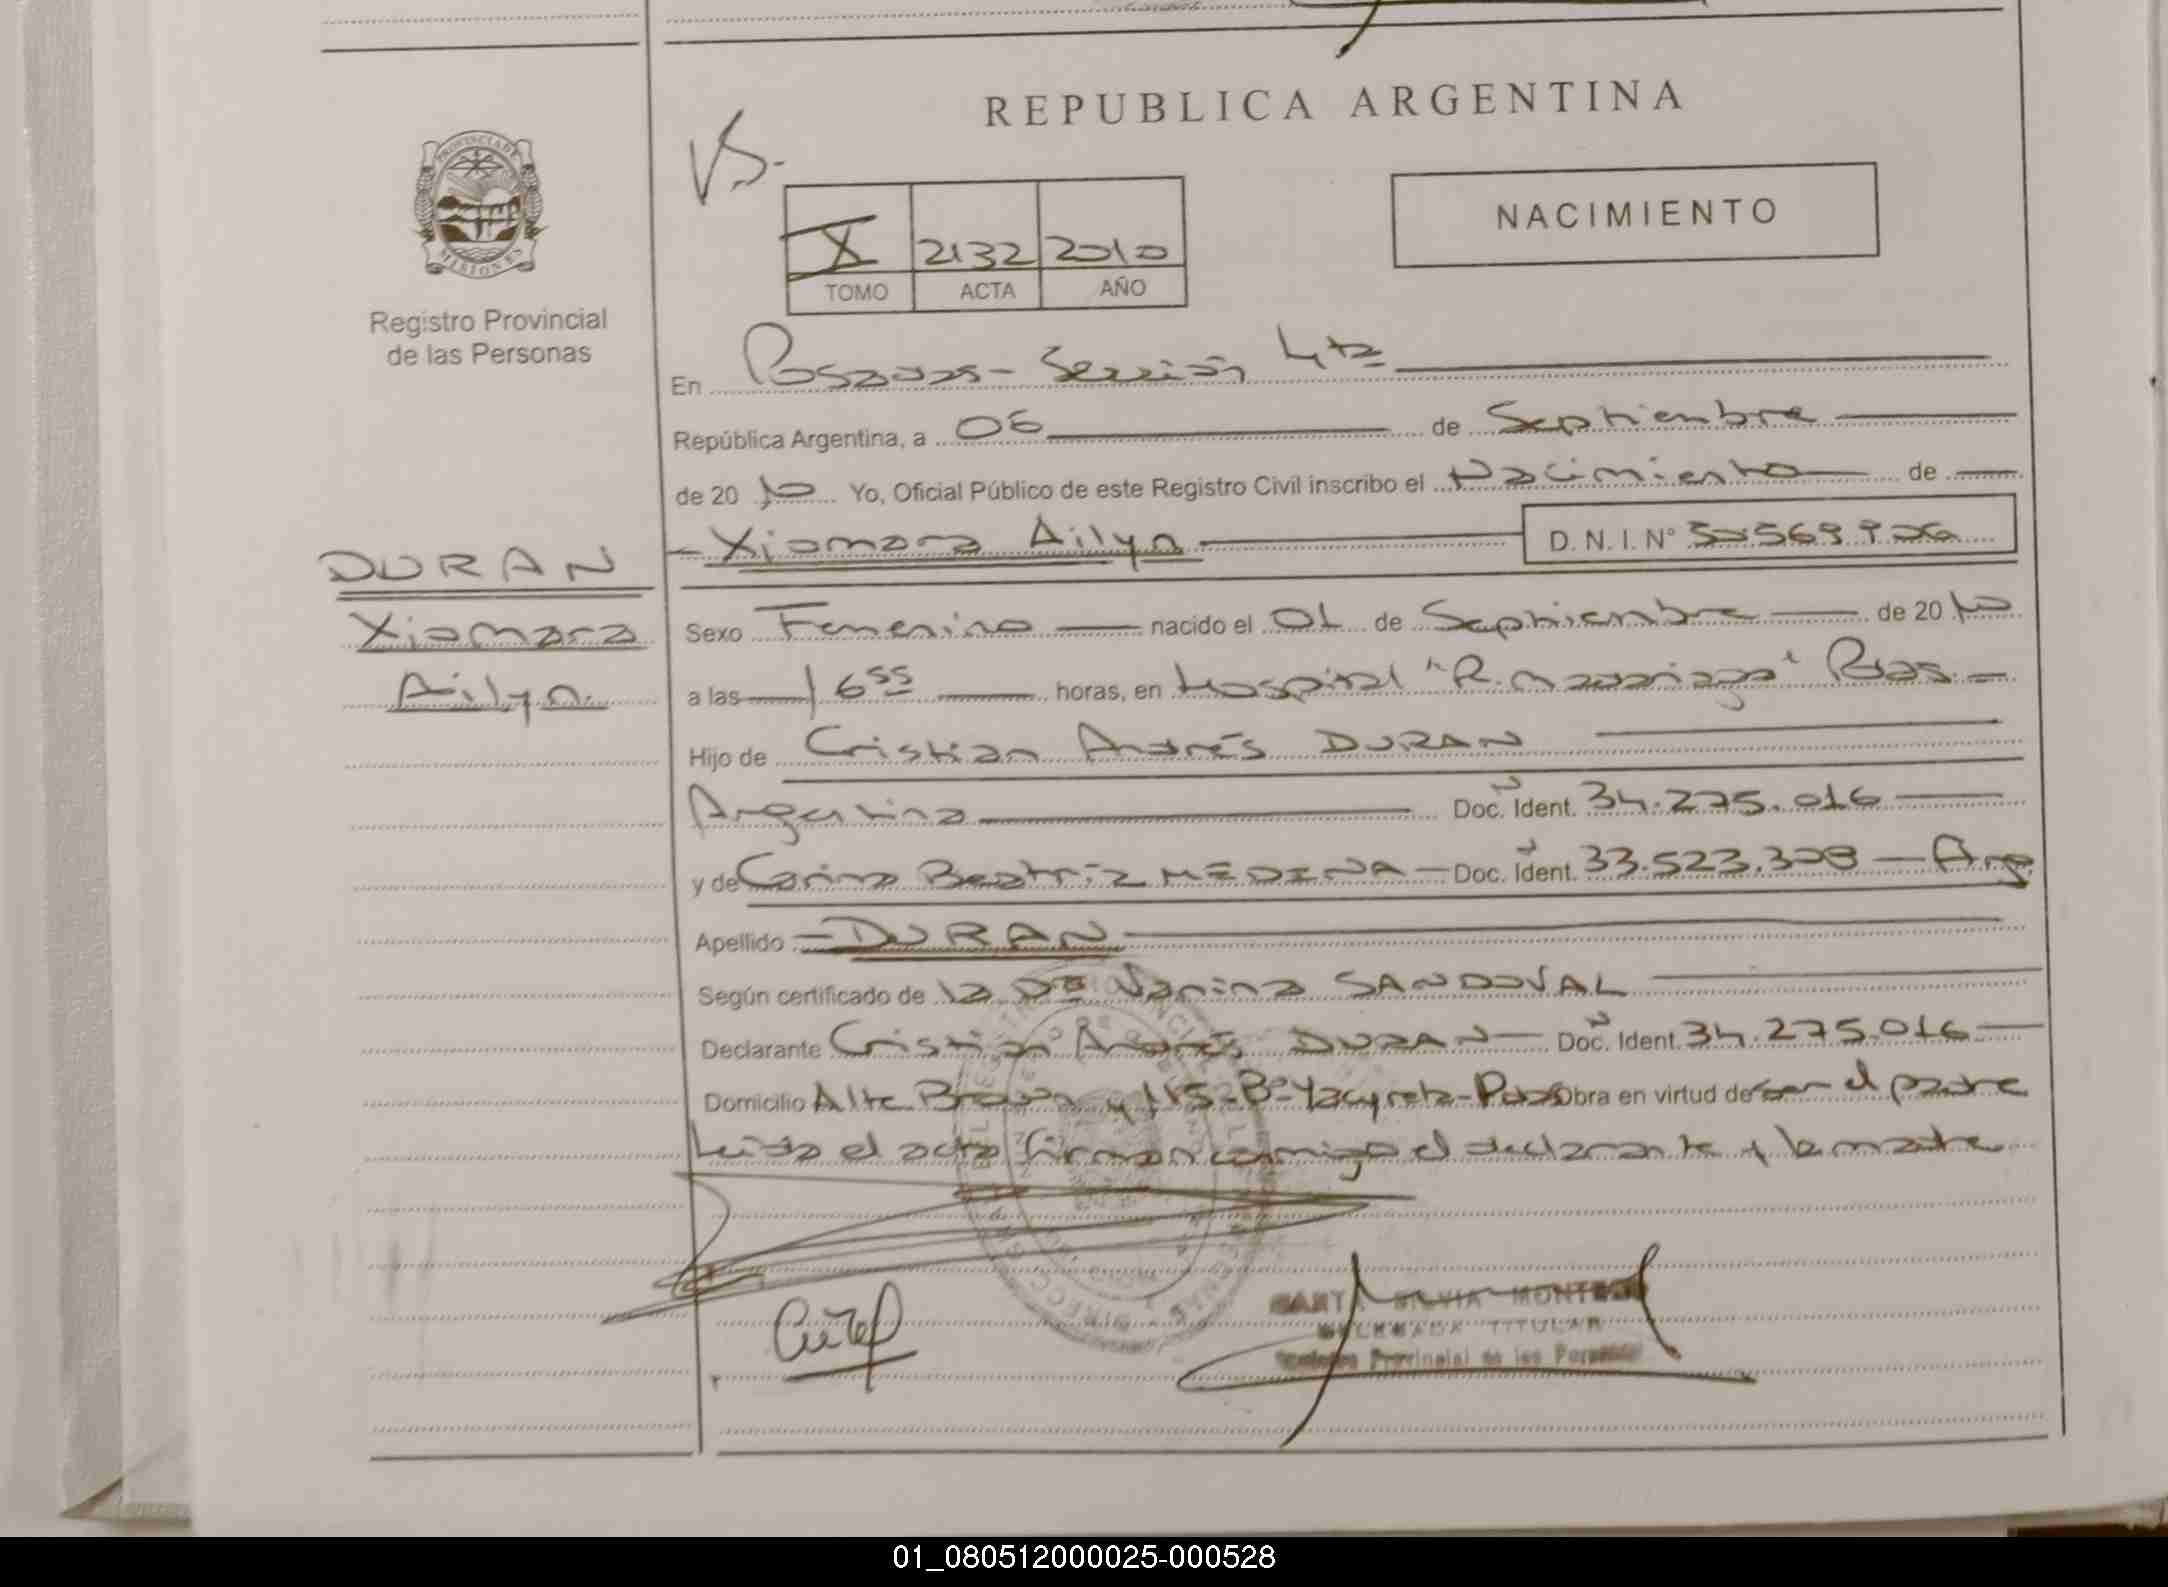 REPUBLICA ARGENTINA
VS.
NACIMIENTO
X 2132 2010
TOMO ACTA AÑO
PROVINCIA DE MISIONES
Registro Provincial
de las Personas
En Posadas - Sección 4ta
República Argentina, a 06 de Septiembre
de 2010 Yo, Oficial Público de este Registro Civil inscribo el Nacimiento de
Xiomara Ailyn D. N. I. Nº
DURAN
Xiomara
Ailyn
Sexo Femenino nacido el 01 de Septiembre de 2010
a las 16 55 horas, en Hospital "R. Madariaga" Pdas.
Hijo de Cristian Andrés DURAN
Argentina Doc. Nº Ident. 34.275.016
y de Carina Beatriz MEDINA - Doc. Nº Ident. 33.523.308 - Arg.
Apellido - DURAN
Según certificado de la Dra Vanina SANDOVAL
Declarante Cristian Andrés DURAN - Doc. Nº Ident. 34.275.016
Domicilio Alte Brown y 115 - Bº Yacyreta - Pdas Obra en virtud de ser el padre
Leida el acta firman conmigo el declarante y la madre
SILVIA
DELEGADA TITULAR
Provincial de las Personas
01_080512000025-000528